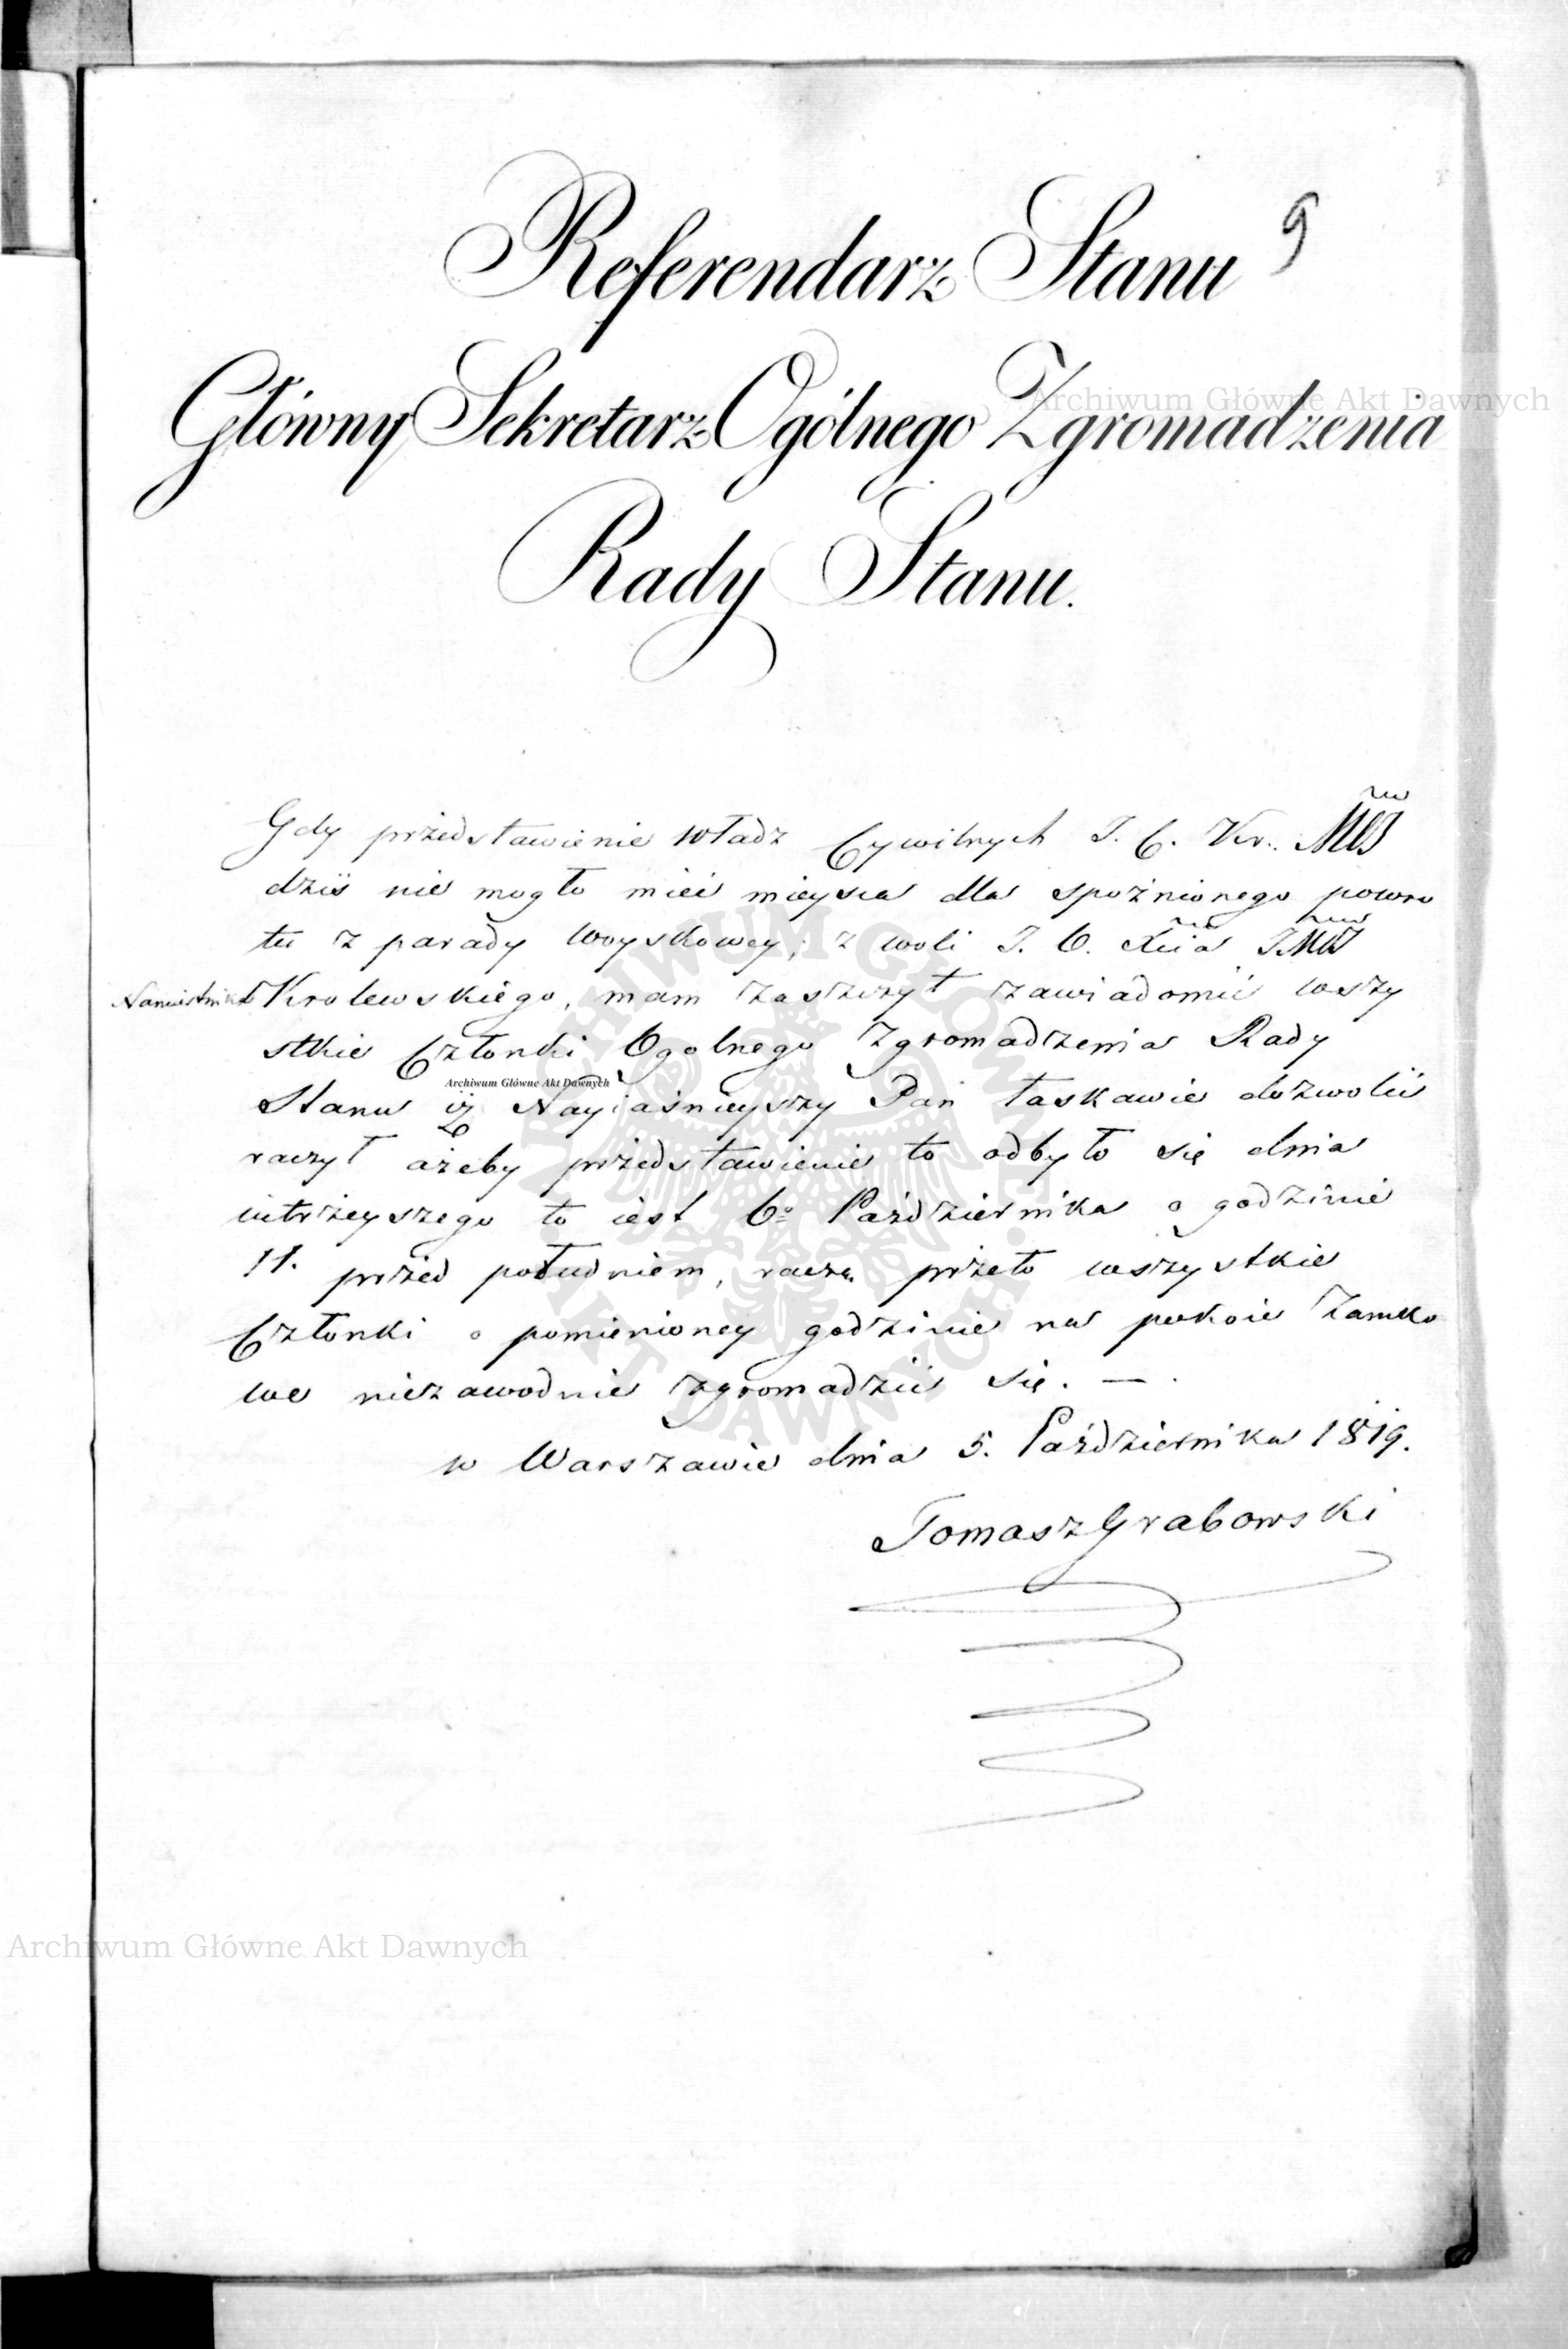 9
Referendarz Stanu
Główny Sekretarz Ogólnego Zgromadzenia
Rady Stanu.
Gdy przedstawienie władz Cywilnych J. C. Kr. Mci
dziś nie mogło mieć mieysca dla spoźnionego powro
tu z parady woyskowey, z woli J. O. Xcia JMci
Namiestnika Krolewskiego, mam zaszczyt zawiadomić wszy
stkie Członki Ogolnego Zgromadzenia Rady
Stanu iż Nayiaśnieyszy Pan łaskawie dozwolić
raczył ażeby przedstawienie to odbyło się dnia
iutrzeyszego to iest 6o Października o godzinie
11. przed południem, raczą przeto wszystkie
Członki o pomienioney godzinie na pokoie Zamko
we niezawodnie zgromadzić się. —.
w Warszawie dnia 5. Października 1819.
Tomasz Grabowski
Archiwum Główne Akt Dawnych
Archiwum Główne Akt Dawnych
Archiwum Główne Akt Dawnych
ARCHIWUM GŁÓWNE AKT DAWNYCH